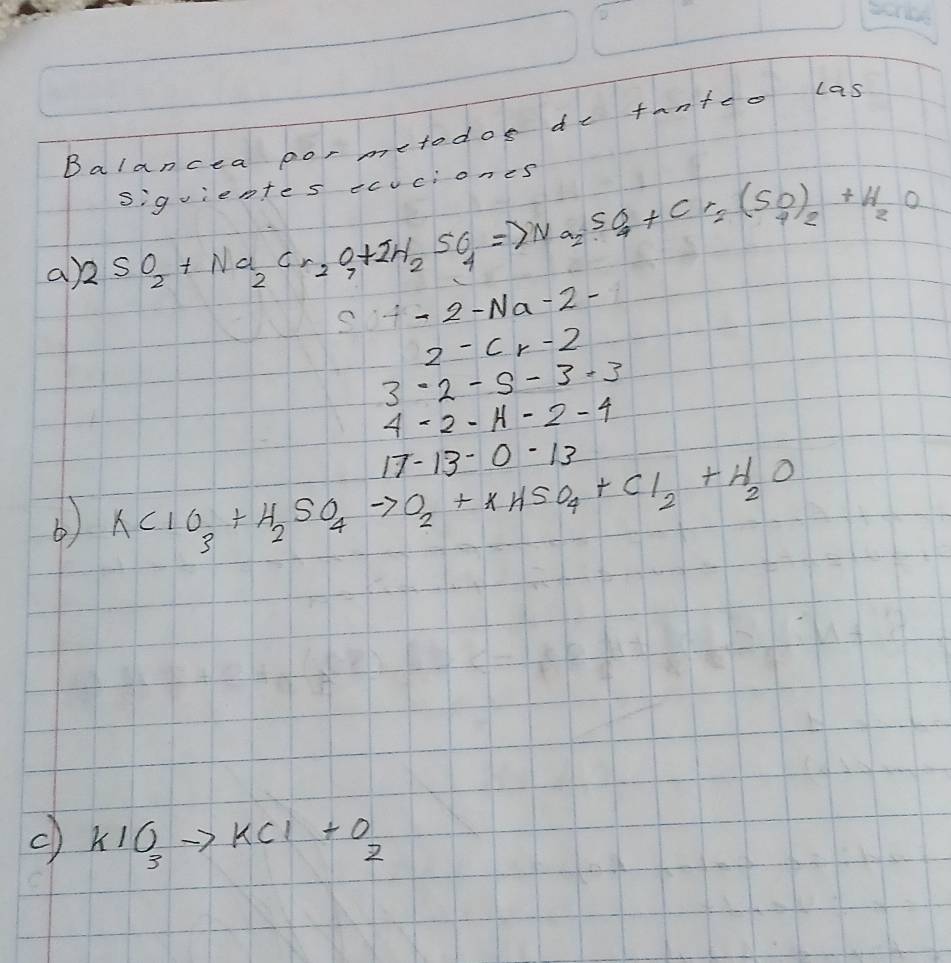 Scribe
Balancea por metodos de tanteo las
siguientes ecuciones
a) 2 SO₂ + Na₂ Cr₂ O₇ + 2H₂ SO₄ => Na₂ SO₄ + Cr₂ (SO₄)₂ + H₂ O
- 2 - Na - 2 -
2 - Cr - 2
3 - 2 - S - 3 - 3
4 - 2 - H - 2 - 4
17 - 13 - O - 13
b) KClO₃ + H₂SO₄ → O₂ + KHSO₄ + Cl₂ + H₂O
c) KlO₃ → KCl + O₂